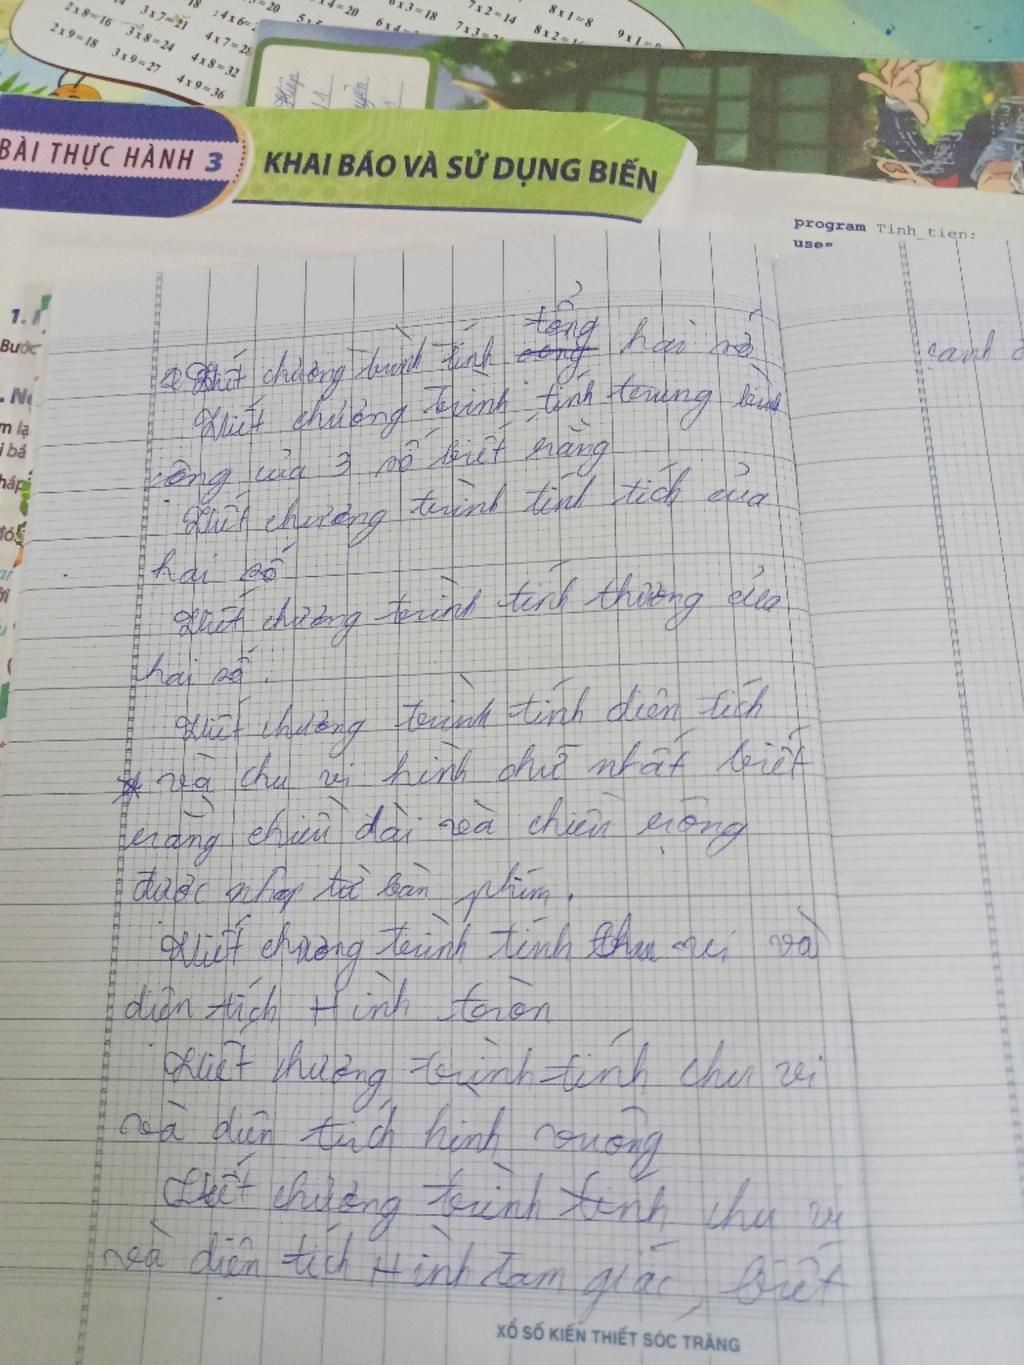 3x7=21
2x8=16 3x8=24 4x7=28
2x9=18 3x9=27 4x8=32
4x9=36
6x3=18 7x2=14 8x1=8
BÀI THỰC HÀNH 3
KHAI BÁO VÀ SỬ DỤNG BIẾN
program Tinh_tien;
1.
Bước
tổng
Viết chương trình tính hai số
Viết chương trình tính trung bình
cộng của 3 số biết rằng
Viết chương trình tính tích của
hai số
Viết chương trình tính thương của
hai số.
Viết chương trình tính diên tích
và chu vi hình chữ nhất biết
rằng chiều dài và chiều rộng
được nhap từ bàn phím.
Viết chương trình tính chu vi và
diên tích Hình tròn
Viết chương trình tính chu vi
và diên tích hinh vuông
Viết chương trình tính chu vi
và diên tích Hình tam giác, biết
canh
XỔ SỐ KIẾN THIẾT SÓC TRĂNG